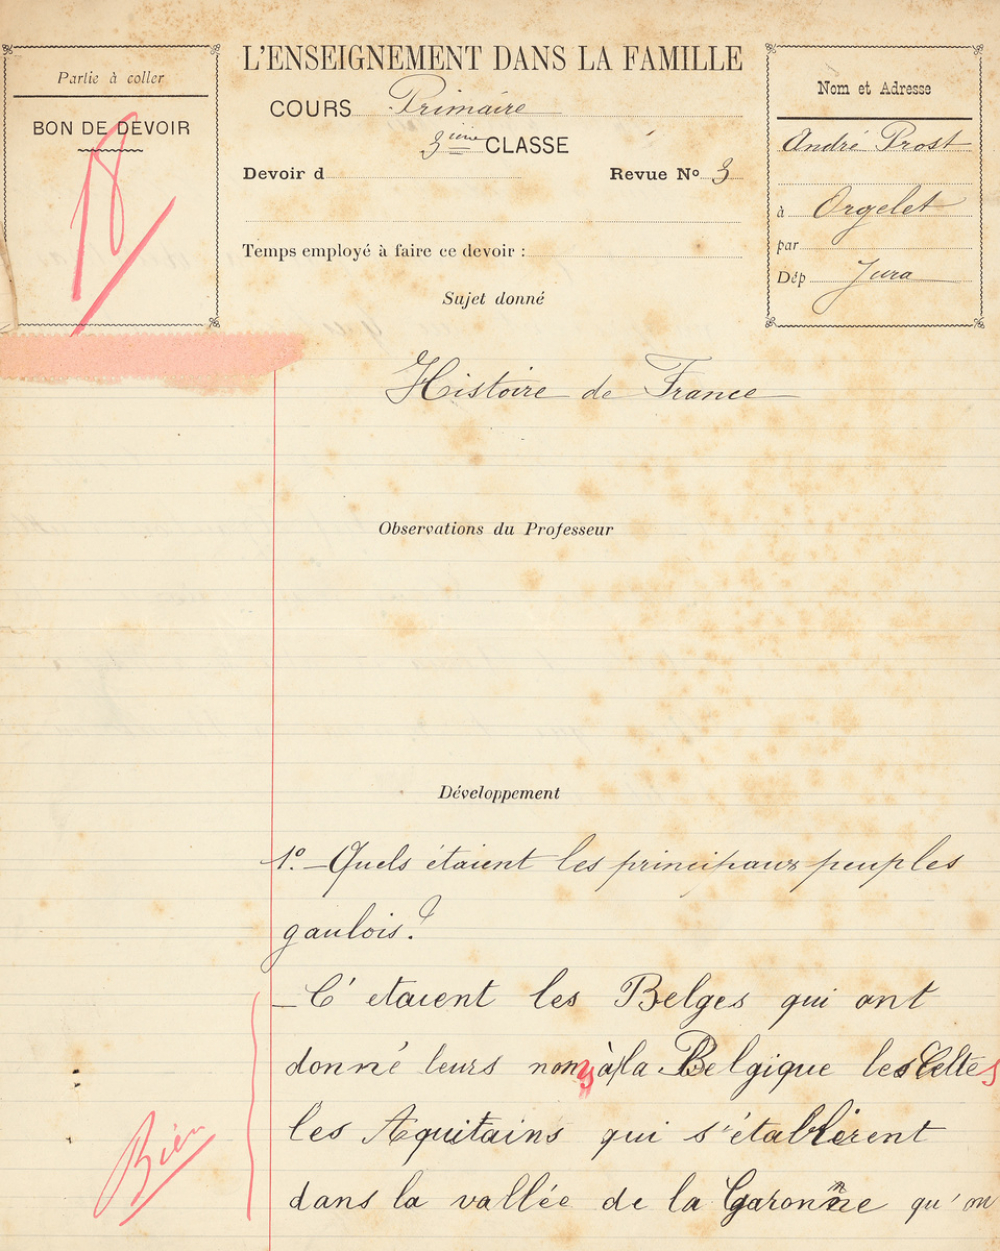 Partie à coller
BON DE DEVOIR
18
L'ENSEIGNEMENT DANS LA FAMILLE
COURS Primaire
3ième CLASSE
Devoir d
Revue No 3
Temps employé à faire ce devoir :
Nom et Adresse
André Prost
à Orgelet
par
Dép Jura
Sujet donné
Histoire de France
Observations du Professeur
Développement
1o. — Quels étaient les principaux peuples
gaulois ?
— C' etaient les Belges qui ont
donné leurs noms à la Belgique les Celtes
les Aquitains qui s'établirent
dans la vallée de la Garonne qu'on
Bien